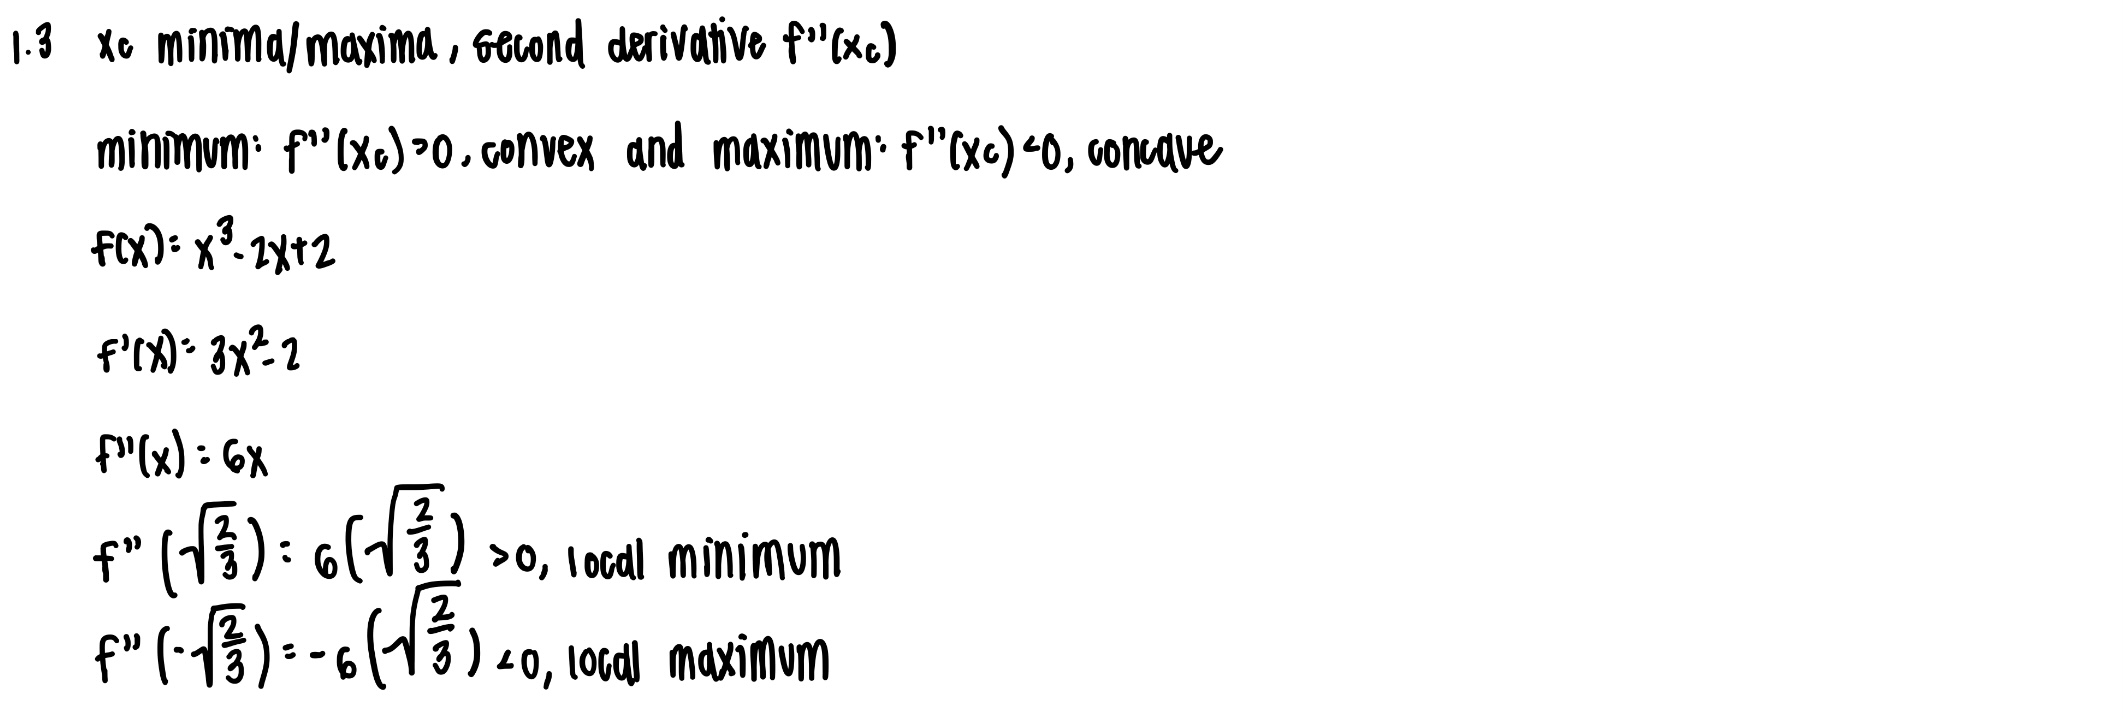 1.3 xc minima/maxima, second derivative f''(xc)
minimum: f''(xc)>0, convex and maximum: f''(xc)<0, concave
f(x)= x³-2x+2
f'(x)= 3x²-2
f''(x) = 6x
f'' (√(2/3)) = 6(√(2/3)) >0, local minimum
f'' (-√(2/3)) = -6(√(2/3)) <0, local maximum